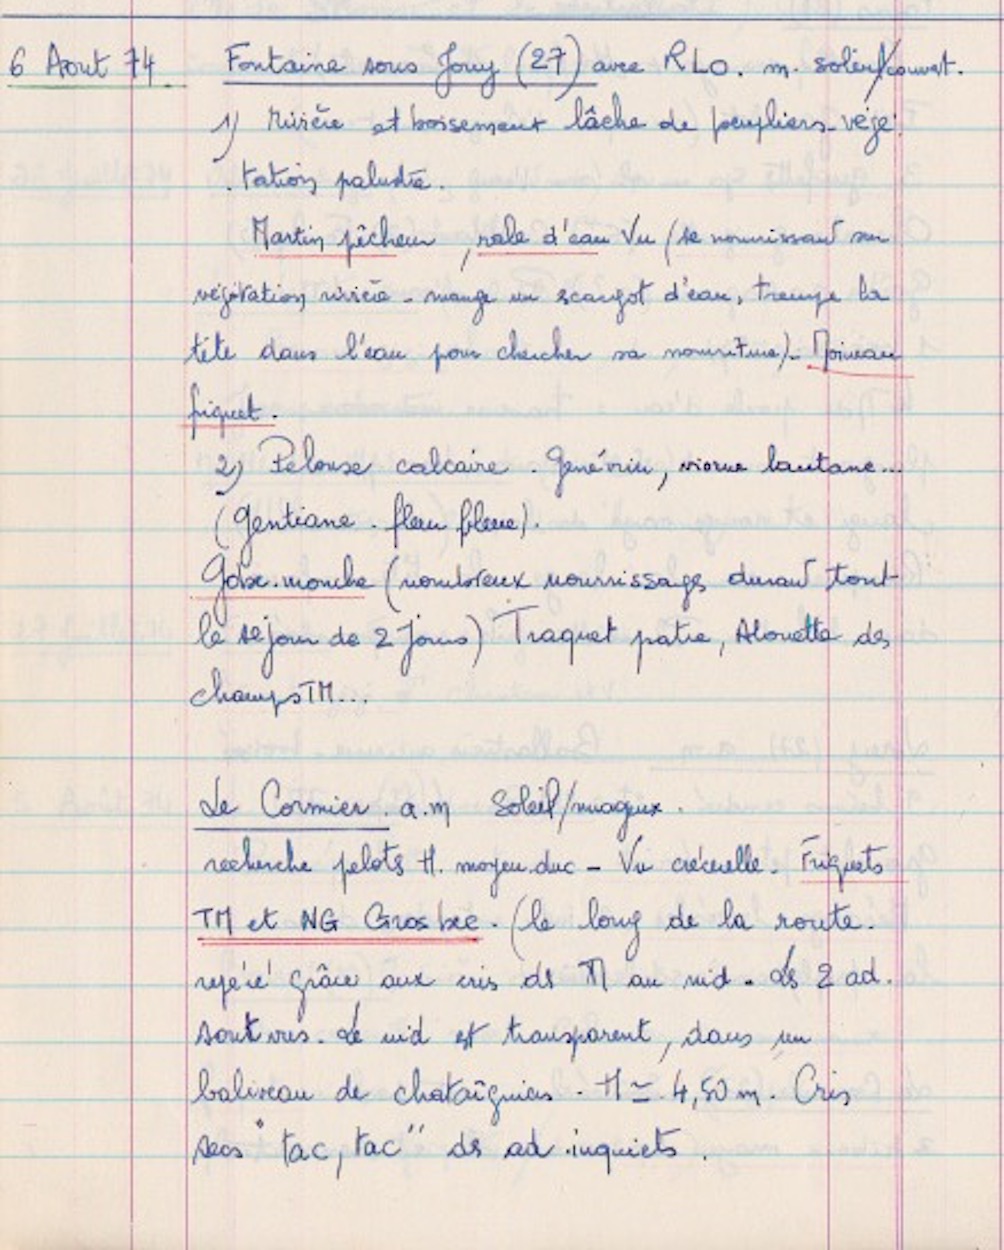 6 Aout 74 Fontaine sous Jouy (27) avec RLO. m. soleil/couvert.
1) Rivière et boisement lâche de peupliers - végé
tation palustre.
Martin pêcheur, râle d'eau Vu (se nourrissant sur
végétation rivière - mange un escargot d'eau, trempe la
tête dans l'eau pour chercher sa nourriture). Moineau
friquet.
2) Pelouse calcaire. Genévrier, viorne lantane...
(Gentiane. fleur bleue).
Gobe.mouche (nombreux nourrissages durant tout
le séjour de 2 jours) Traquet patre, Alouette des
champs TM...
Le Cormier. a.m Soleil/nuageux.
recherche pelots H. moyen.duc - Vu crécerelle. Friquets
TM et NG Gros bec. (le long de la route.
repéré grâce aux cris ds M au nid. Ls 2 ad.
sont vus. Le nid est transparent, dans un
baliveau de chataîgnier. H ≃ 4,50 m. Cris
secs "tac, tac" ds ad inquiets.